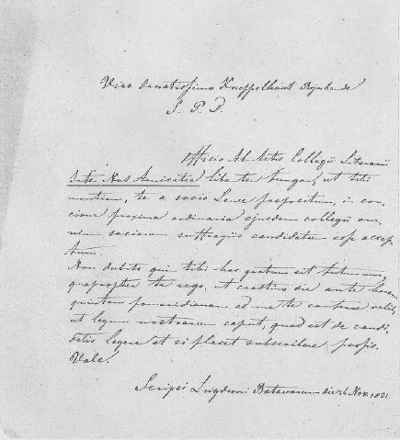 Viro Ornatissimo Kneppelhout
S. P. D.
Officio Ab Actis Collegii Literarii
Inter Nos Amicitia libente fungor, ut tibi
nuntiem, te a socio propositum, in con-
cione proxima ordinaria ejusdem collegii om-
nium sociorum suffragiis candidatum esse accep-
tum.
Non dubito quin tibi hoc gratum sit futurum,
quapropter te rogo, ut crastino die ante horam
quintam pomeridianam ad me te conferre velis,
ut legum nostrarum caput, quod est de candi-
datis legere et si placet subscribere possis.
Vale!
Scripsi Lugduni Batavorum die 26 Nov. 1831.